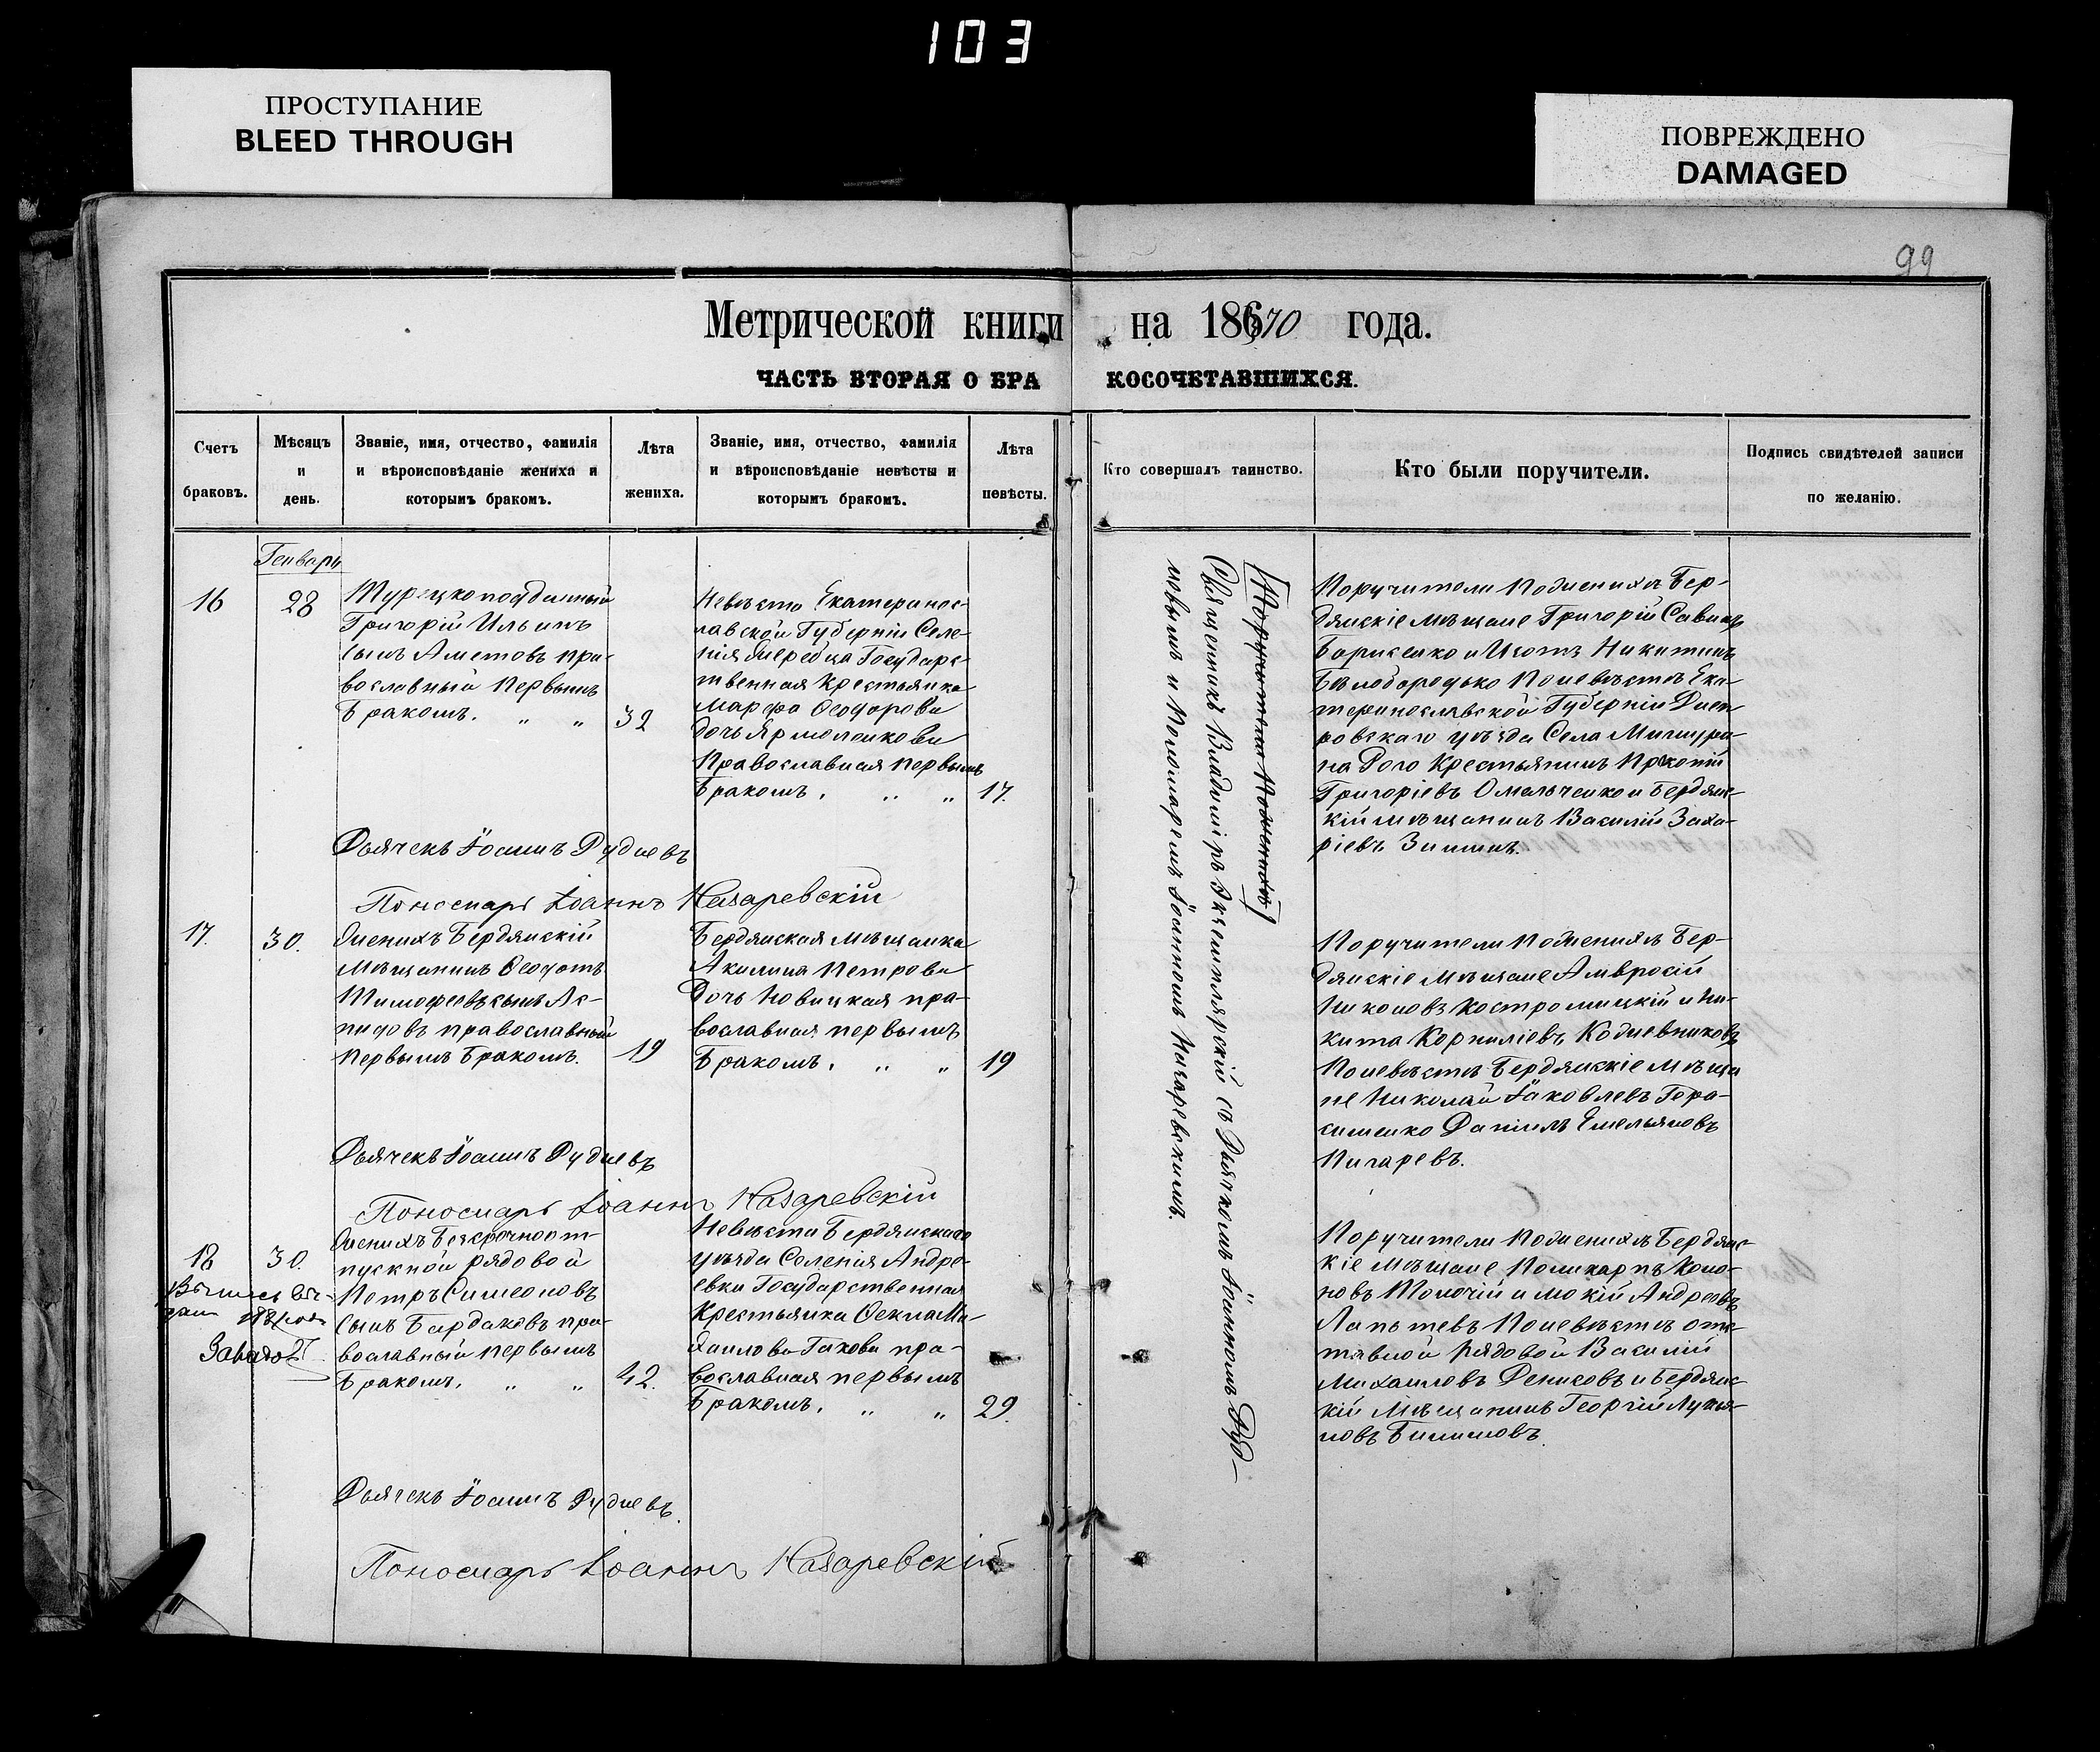 103
ПРОСТУПАНИЕ
BLEED THROUGH
ПОВРЕЖДЕНО
DAMAGED
99
Метрической книги на 1870 года.
ЧАСТЬ ВТОРАЯ О БРАКОСОЧЕТАВШИХСЯ.
Счетъ
браковъ.
Мѣсяцъ
и
день.
Званіе, имя, отчество, фамилія
и вѣроисповѣданіе жениха и
которымъ бракомъ.
Лѣта
жениха.
Званіе, имя, отчество, фамилія
и вѣроисповѣданіе невѣсты и
которымъ бракомъ.
Лѣта
невѣсты.
Кто совершалъ таинство.
Кто были поручители.
Подпись свидѣтелей записи
по желанію.
Генварь
16
28
Турецкоподданный
Григорій Ильинъ
сынъ Аметовъ пра-
вославный первымъ
бракомъ. " " 32
Невѣста Екатеринос-
лавской Губерніи Селе-
нія Государс-
твенная крестьянка
Марфа Ѳеодорова
дочь Ярмоленкова
Православная первымъ
бракомъ. " " 17.
Поручители по женихѣ Бер-
дянскіе мѣщане Григорій Савинъ
Борисенко и Изотъ Никитинъ
Бѣлобородько По невѣстѣ Ека-
теринославской Губерніи Днеп
ровскаго уѣзда Села Мишури-
на Рого Крестьянинъ Прокопій
Григоріевъ Омельченко и Бердянс-
кій мѣщанинъ Василій Заха-
ріевъ Зиминъ.
Дьячекъ Іоаннъ Рудневъ
Пономарь Іоаннъ Назаревскій
17.
30.
Женихъ Бердянскій
Мѣщанинъ Ѳеодотъ
Тимофеевъ сынъ Ас-
пидовъ православный
первымъ бракомъ. 19
Бердянская мѣщанка
Акилина Петрова
дочь Новицкая пра-
вославная первымъ
бракомъ. " " 19
Поручители по женихѣ Бер-
дянскіе мѣщане Амвросій
Никоновъ Костромицкій и Ни-
кита Корниліевъ Кожевниковъ
По невѣстѣ Бердянскіе мѣща
не Николай Іаковлевъ Гера-
сименко Даніилъ Емельяновъ
Пигаревъ.
Дьячекъ Іоаннъ Рудневъ
Пономарь Іоаннъ Назаревскій
18
30.
1881 года
Женихъ Безсрочноот-
пускной рядовой
Петръ Симеоновъ
сынъ Бардаковъ пра-
вославный первымъ
бракомъ. " " 42.
Невѣста Бердянскаго
уѣзда Селенія Андре-
евки Государственная
Крестьянка Ѳекла Ми-
хаилова Гакова пра-
вославная первымъ
бракомъ. " " 29.
Поручители по женихѣ Бердянс-
кіе мѣщане Поликарпъ Коно-
новъ и Мокій Андреевъ
Лаптевъ По невѣстѣ отс-
тавной рядовой Василій
Михаиловъ Дениковъ и Бердянс-
кій мѣщанинъ Георгій Лукья-
новъ
Дьячекъ Іоаннъ Рудневъ.
Пономарь Іоаннъ Назаревскій
Поручители по женихѣ
Священникъ Владиміръ Экземплярскій съ Дьячкомъ Іоанномъ Руд-
невымъ и Пономаремъ Іоанномъ Назаревскимъ.